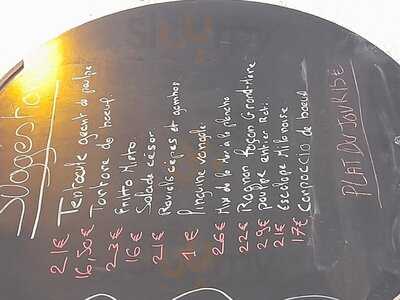 Suggestion
Tentacule agent de poulpe 21€
Tartare de boeuf. 16,50€
Fritto Misto 23€
Salade césar 16€
Raviolis cèpes et gambas 21€
Linguine vongole 1 €
Mix de la mer à la plancha 26€
Rognon façon Grand-Mère 22€
poulpe entier Rôti. 29€
Escalope Milanaise 21€
Carpaccio de boeuf 17€
PLAT DU JOUR 15€